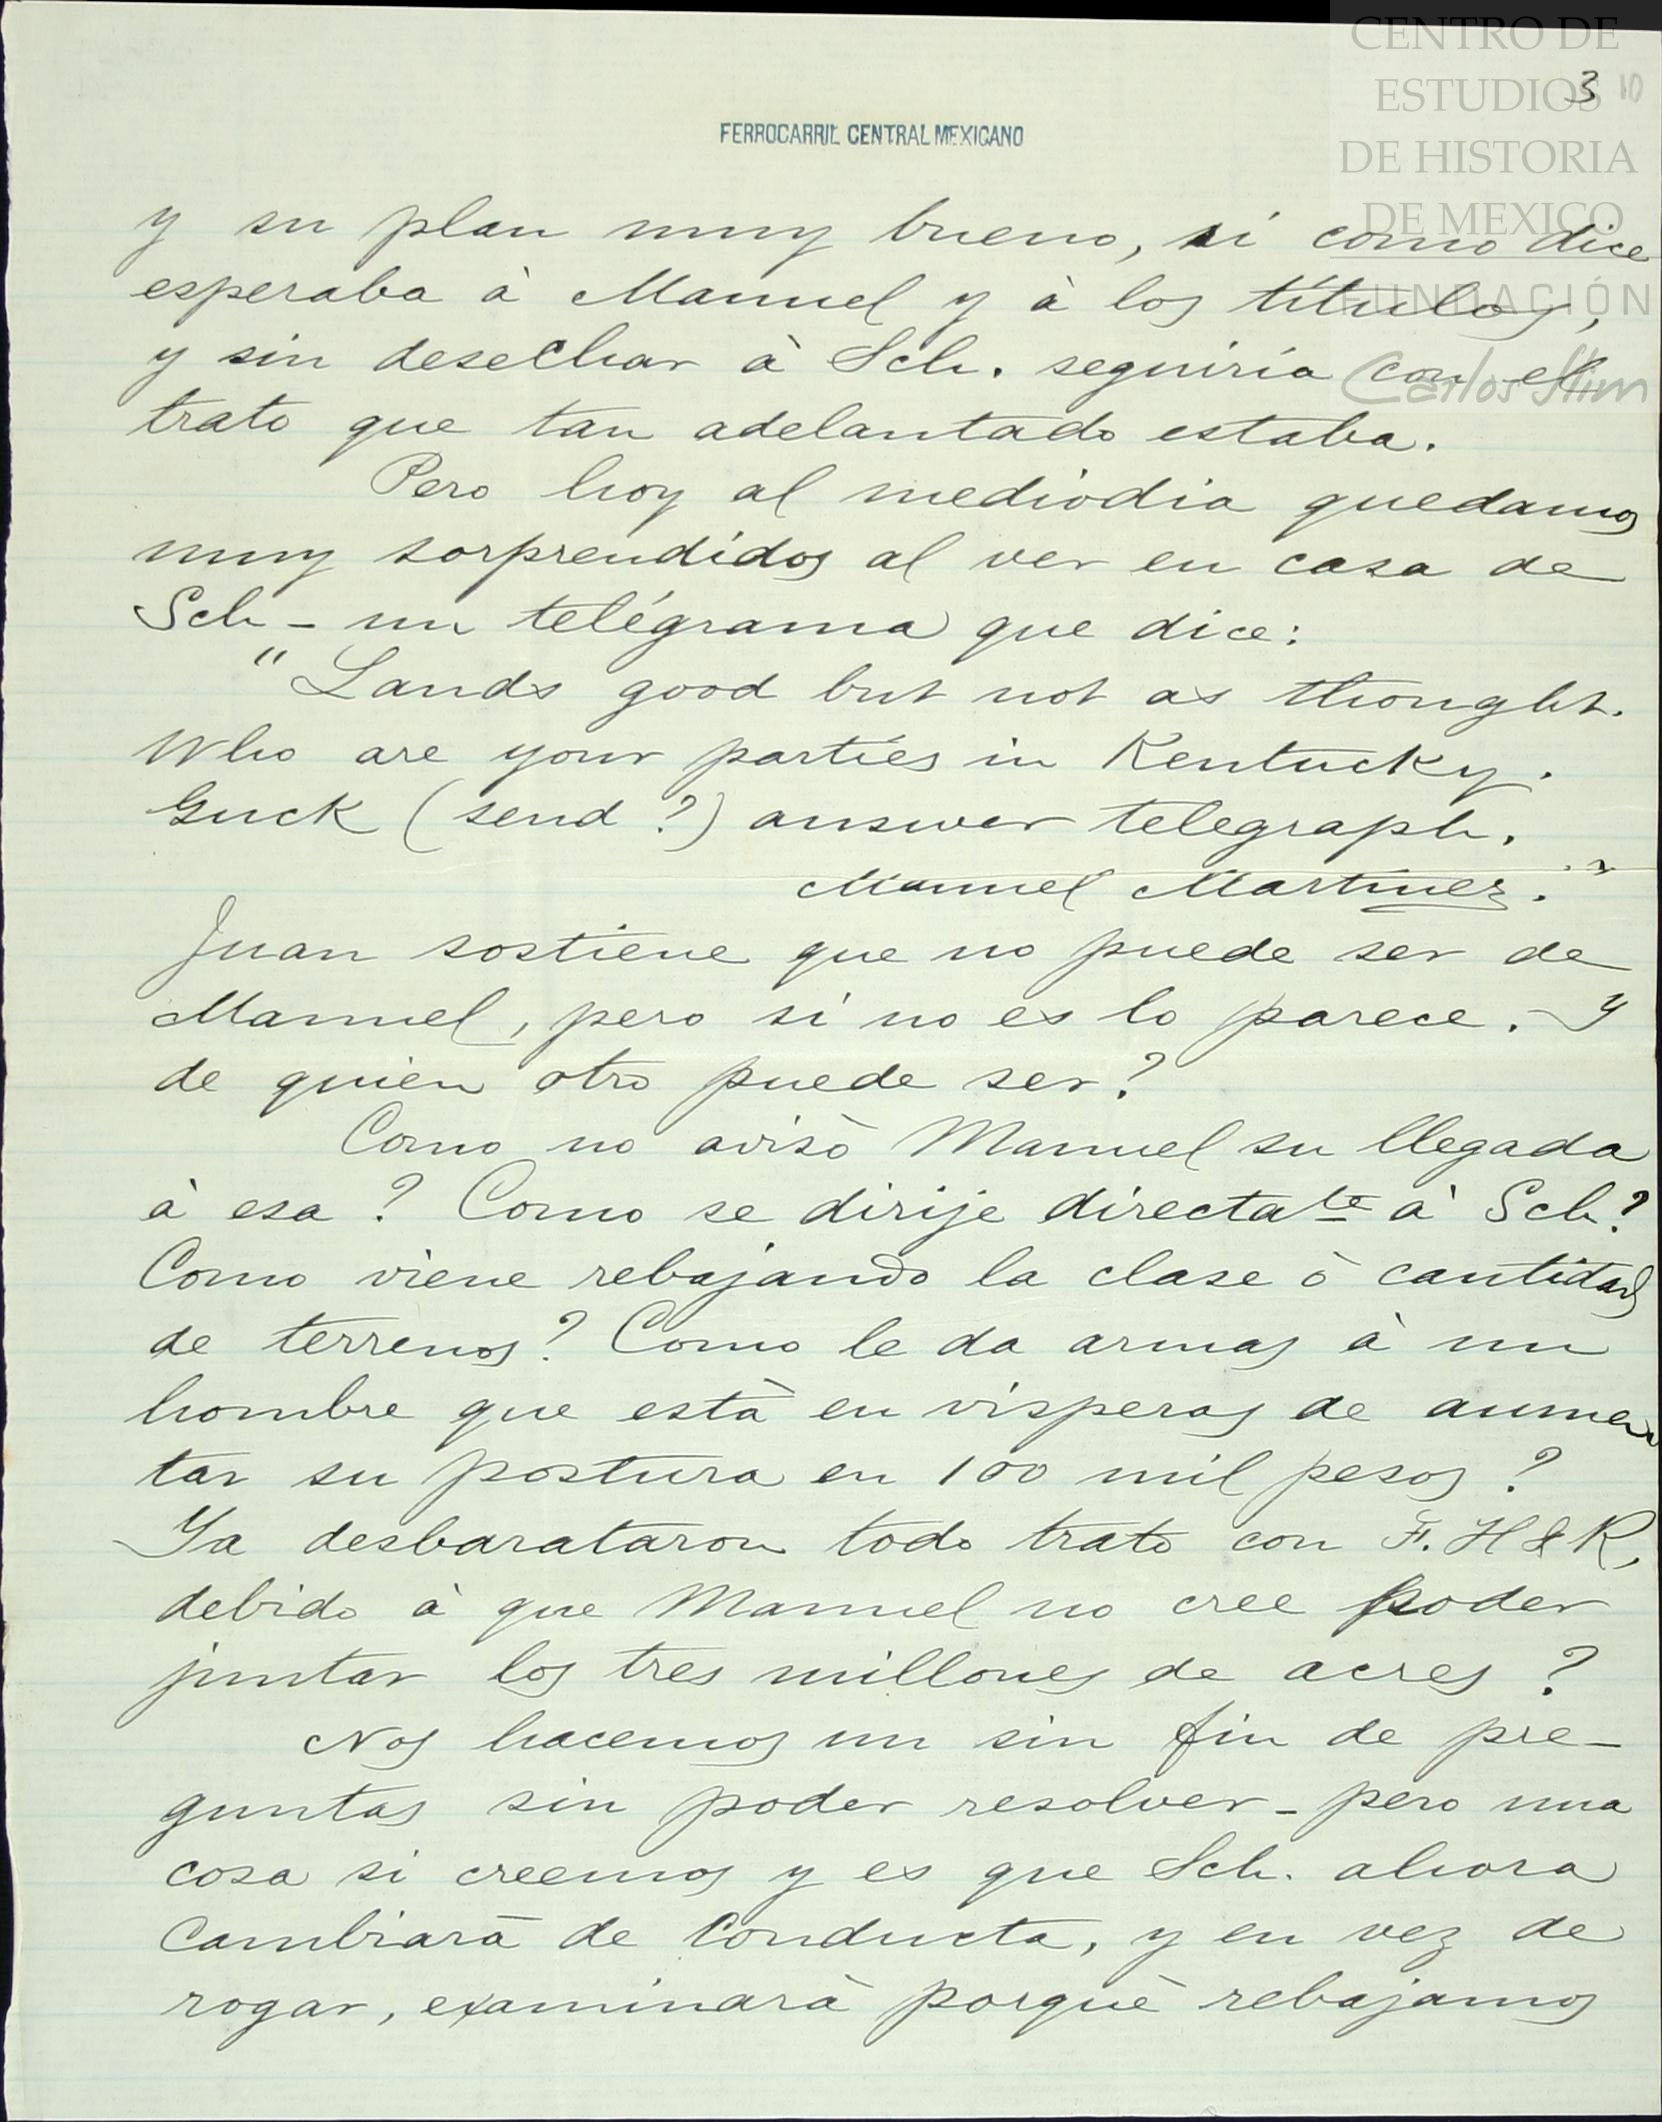 CENTRO DE
ESTUDIOS
DE HISTORIA
DE MEXICO
FUNDACIÓN
Carlos Slim
3 10
FERROCARRIL CENTRAL MEXICANO
y su plan muy bueno, si como dice
esperaba à Manuel y à los títulos,
y sin desechar à Sch. seguiría con el
trato que tan adelantado estaba.
Pero hoy al mediodia quedamos
muy sorprendidos al ver en casa de
Sch - un telégrama que dice:
"Lands good but not as thought.
Who are your parties in Kentucky.
Guck (send ?) answer telegraph.
Manuel Martinez."
Juan sostiene que no puede ser de
Manuel, pero si no es lo parece. - Y
de quien otro puede ser?
Como no avisò Manuel su llegada
à esa? Como se dirije directate à Sch?
Como viene rebajando la clase ò cantidad
de terrenos? Como le da armas à un
hombre que està en visperas de aumen
tar su postura en 100 mil pesos?
Ya desbarataron todo trato con F. H & R.
debido à que Manuel no cree poder
juntar los tres millones de acres?
Nos hacemos un sin fin de pre-
guntas sin poder resolver - pero una
cosa si creemos y es que Sch. ahora
Cambiarà de Conducta, y en vez de
rogar, examinarà porquè rebajamos